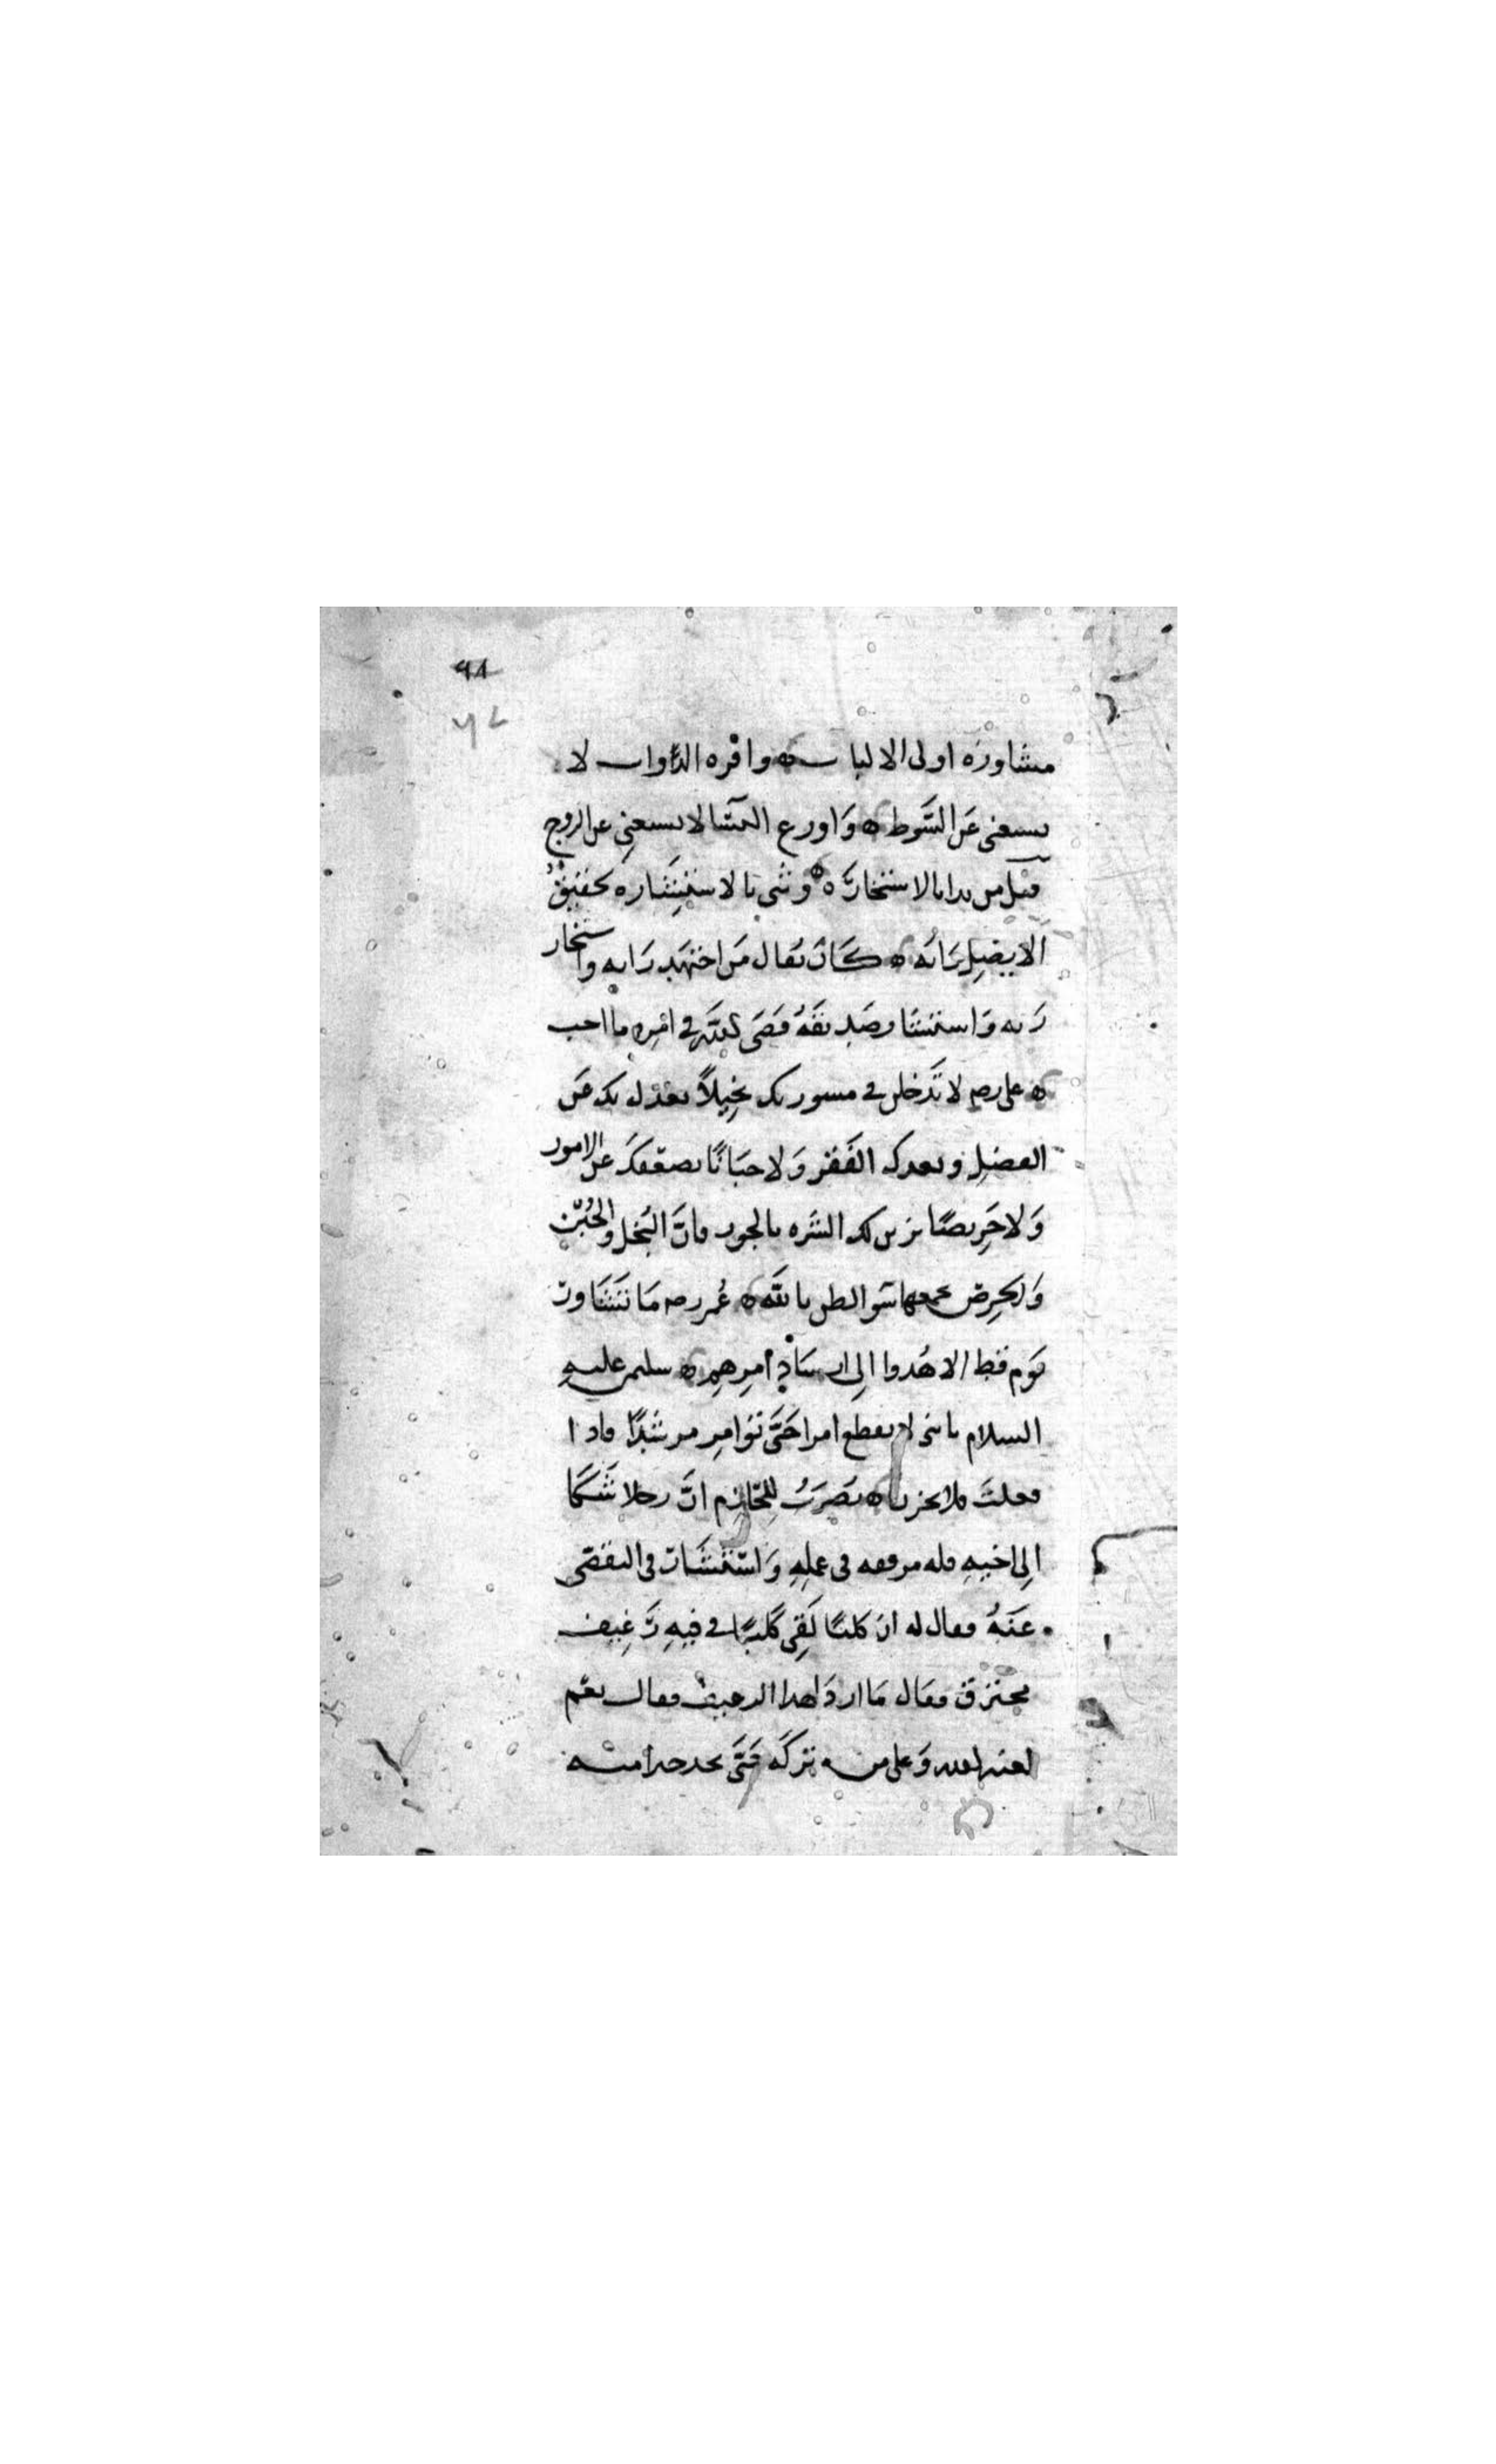 ٩٨
٩٢
مشاورة اولى الالباب ه وافره الدواب لا
يستغنى عن السَّوط ه وَاورع النسا لا يستغني عن الزوج
قيل من بدا بالاستخارة ه وثنى بالاستشاره فحقيقٌ
الا يضِل رَايه ه كَانَ يقال مَن اجتهَد رَايه واستخار
رَبه وَاستشار صَديقَهُ قضَى للهَ في امره ما احب
ه على رضه لا تَدخلن في مسورتك بخِيلاً يعدل بك عَن
الفضلِ ويعدك الفَقر وَلا جبَانًا يضعفكَ عن الامور
وَلا حَرِيصًا يزين لك الشره بالجور فانَّ البُخل والجُبن
وَالحِرصَ يجمعها سَوُ الظن باللَّه ه عُمر رضه مَا تشَاور
قوَم قط الا هُدوا اِلى ارشَادِ امرِهم ه سليمن عليهِ
السلام يا بنى لا تقطع امرا حَتَّى تؤامِر مرشِدًا فاذا
فعلتَ فلا تحزن ه يُضرَبُ للحَازِم انَّ رجلا شَكَا
الِى اخيهِ قله مرفقه فى عملِهِ وَاستشارَ فى التفصّى
عَنهُ فقال له ان كلبًا لَقِى كَلبًا في فيهِ رَغِيف
محترق فقال مَا اردَا هذا الرغيف فقال نعَم
لعنه الله وَعلى من يتركَه حَتَّى يجد خيرا منه